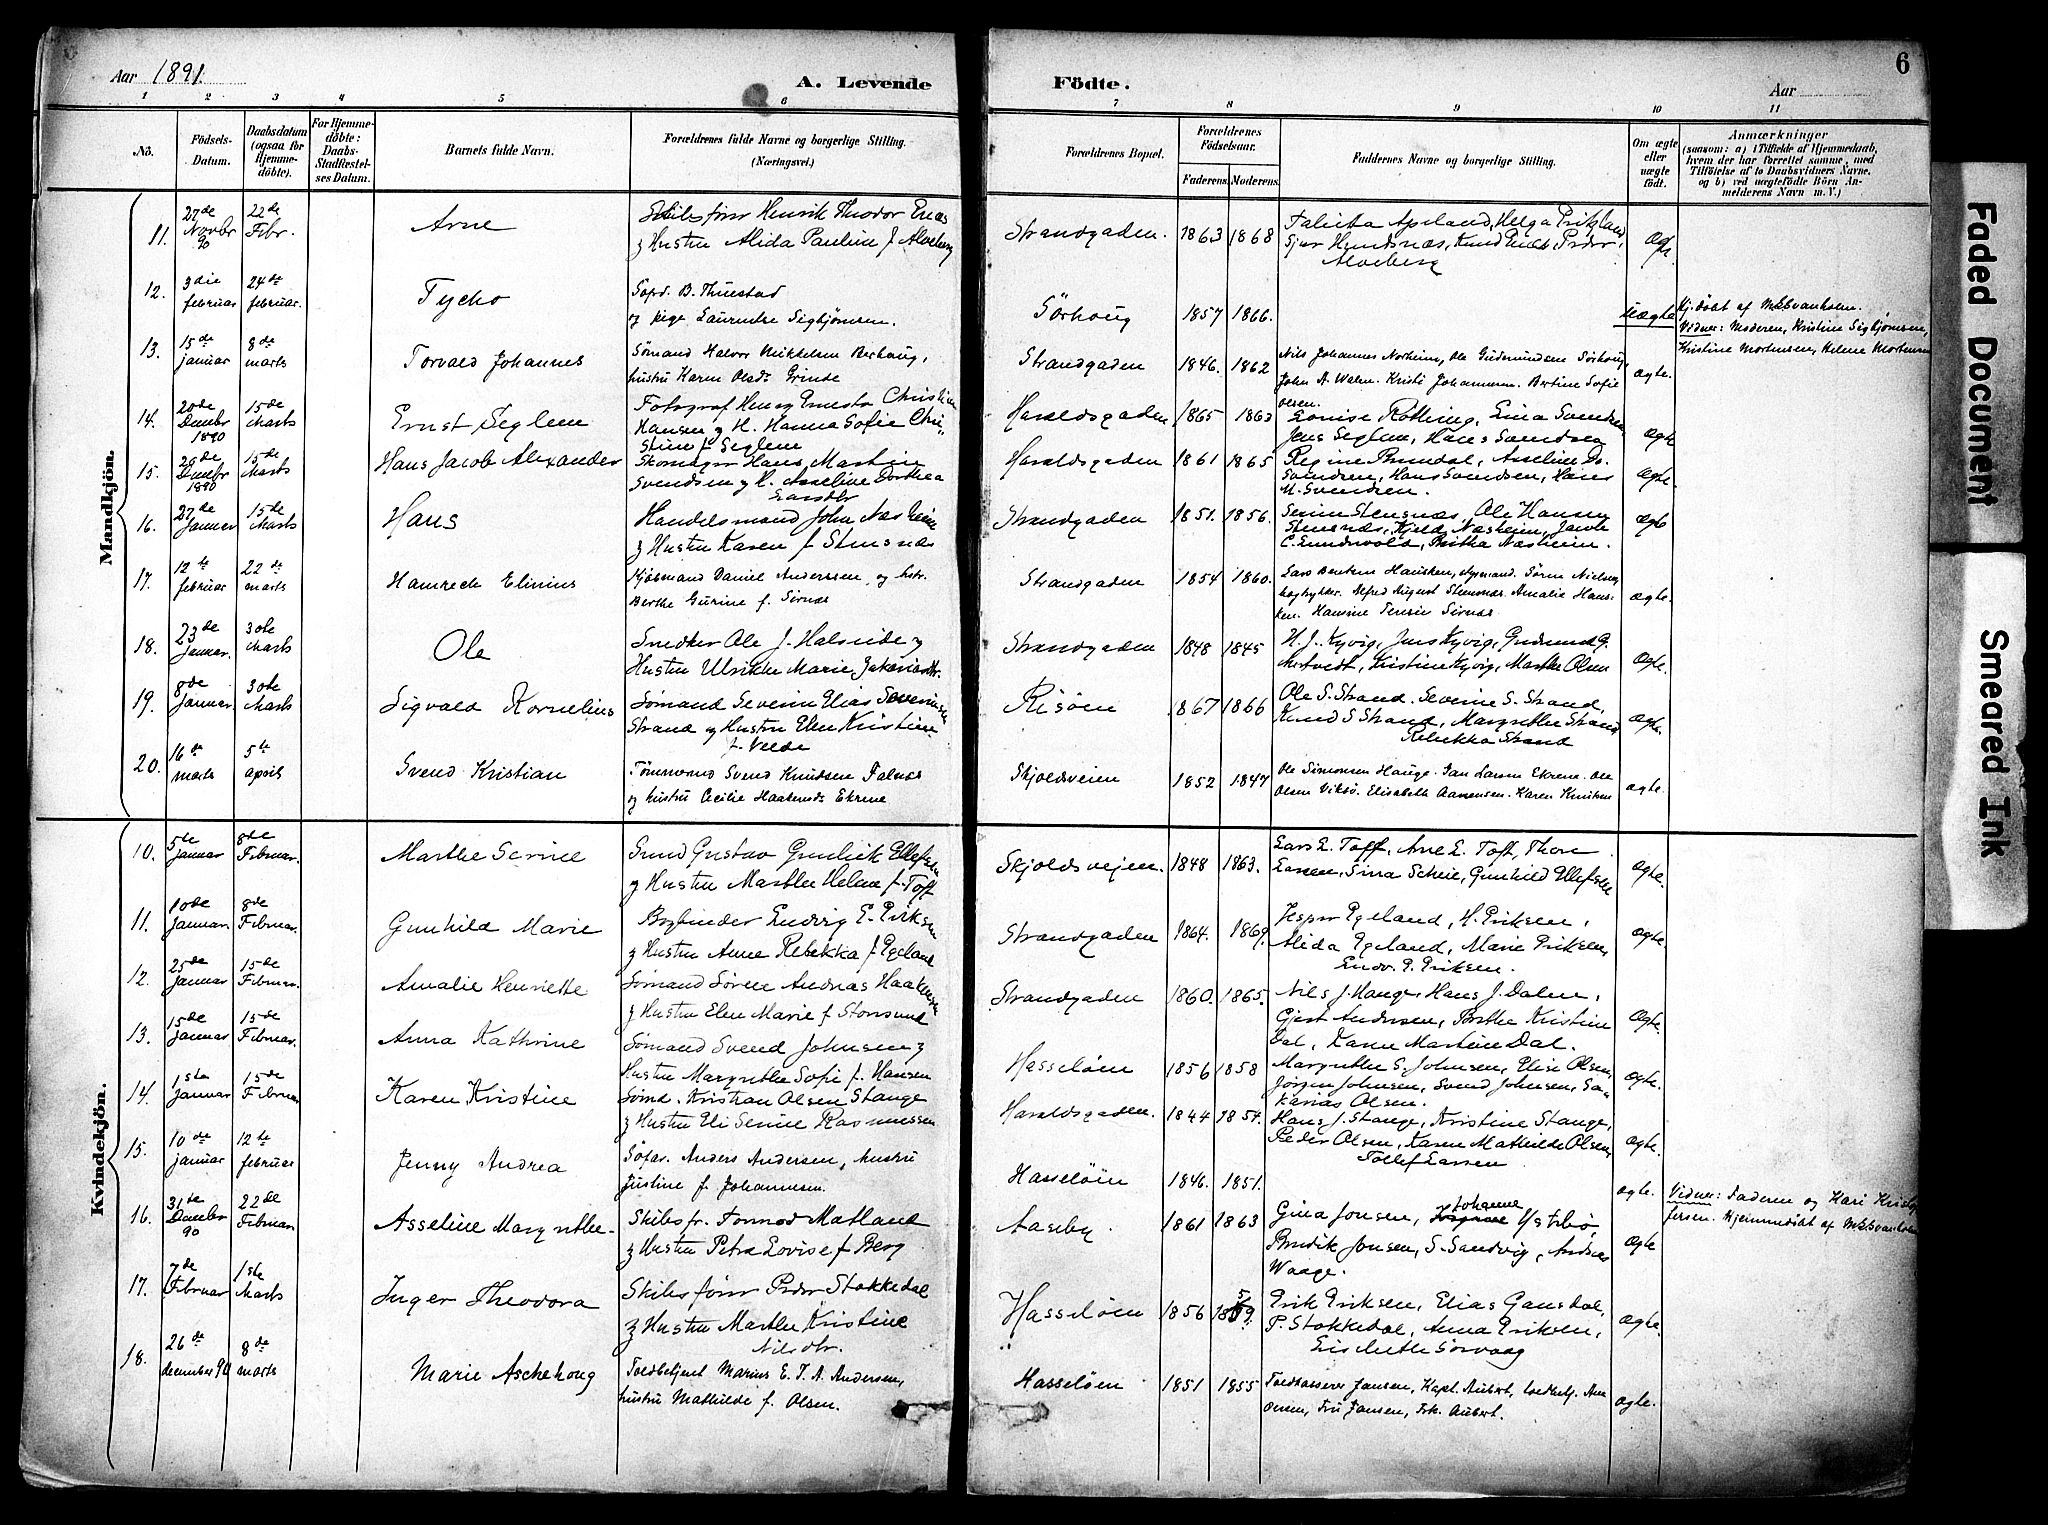 Aar 1891.
A. Levende
Födte.
Aar
6
1 2 3 4 5 6 7 8 9 10 11
Nö.
Födsels-Datum.
Daabsdatum (ogsaa for Hjemme-döbte).
For Hjemme-döbte: Daabs-Stadfæstel-ses Datum.
Barnets fulde Navn.
Forældrenes fulde Navne og borgerlige Stilling. (Næringsvei.)
Forældrenes Bopæl.
Forældrenes Födselsaar.
Faderens. Moderens.
Faddernes Navne og borgerlige Stilling.
Om ægte eller uægte födt.
Anmærkninger
(saasom: a) i Tilfælde af Hjemmedaab, hvem der har forrettet samme, med Tilföielse af to Daabsvidners Navne, og b) ved uægtefödte Börn Anmelderens Navn m. V.)
Mandkjön.
11. 27de Novbr 90 22de Febr. Arne
& Hustru Alida Pauline f. Alveberg
Strandgaden. 1863 1868
Alveberg
12. 3die februar 24de februar. Tycho
og pige Laurentse Sigbjørnsen.
Sörhoug 1857 1866. uægte
Hj.döbt af
Vidner: Moderen, Kristine Sigbjørnsen,
Kristine Mortensen, Helene Mortensen
13. 15de januar 8de marts Torvald Johannes
Sømand Halvor Mikkelsen
hustru Karen Olsdr Grinde
Strandgaden 1846. 1862
Nils Johannes Norheim, Ole Gudmundsen Sørhoug,
Bertine Sofie
Olsen. ægte.
14. 20de Decmbr 1890 15de Marts Ernst Seglem
Fotograf Henry Ernesto Christian
Hansen & H. Hanna Sofie Chri-
stine f. Seglem
Haraldsgaden 1865 1863
Louise Rötting, Lina Svendsen
Jens Seglem, Hans Svendsen ægte
15. Decmbr 1890 15de Marts Hans Jacob Alexander
Skomager Hans Martin
Svendsen & H. Asseline Dorthea
Haraldsgaden 1861 1865
Svendsen, Hans Svendsen, Hans
M. Svendsen. ægte.
16. 27de Januar 15de Marts Hans
Handelsmand John Næsheim
& Hustru Karen f. Stensnæs
Strandgaden 1851. 1856.
Serine Stensnæs, Ole Hansen
Stensnæs, Kjeld Næsheim, Jacob
C. Sundvold, Britha Næsheim. ægte
17. 12te februar 22de marts Hamrech Elinius
Kjøbmand Daniel Anderssen og hstr.
Berthe Gurine f. Sirnæs
Strandgaden 1854 1860.
Lars Bentsen Hausken, styrmand. Søren Nielsen,
bogtrykker. Alfred August Stensnæs. Amalie Haus-
ken. ægte.
18. 23de Januar. 30te Marts Ole
Snedker Ole J. Halsnide &
Hustru Ulrikke Marie
Strandgaden 1848 1845
H. J. Kyvig, Jens Kyvig, Gudmund G.
Kristine Kyvig, Marthe Olsen ægte.
19. 8de Januar 30te Marts Sigvald Kornelius
Sømand Severin Elias Severinsen
Strand & Hustru Ellen Kristine
f. Velde
Risöen 1867 1866
Ole S. Strand, Severine S. Strand,
Knud S Strand, Margrethe Strand
Rebekka Strand ægte.
20. 16de marts 5te april Svend Kristian
Tømmermand Svend Knudsen Falnæs
og hustru Cecilie Haakensdr Ekrene
Skjoldveien 1852 1847
Ole Simonsen Hauge. Jan Larsen Ekrene. Ole
Olsen Viksö. Elisabeth Aanensen. Karen Knutsen ægte.
Kvindekjön.
10. 5te Januar 8de Februar. Marthe Serine
Smed Gustav Gunliek Ellefsen
& Hustru Marthe Helene f. Toft
Skjoldsvejen. 1848 1863.
Lars L. Toft, Arne L. Toft, Thore
Larsen, Sina Scheie, Gunhild Ellefsen ægte.
11. 10de Januar 8de Februar. Gunhild Marie
Bogbinder Ludvig E. Eriksen
& Hustru Anne Rebekka f. Egeland
Strandgaden 1864. 1869.
Jesper Egeland, H. Eriksen,
Alida Egeland, Marie Eriksen,
Ludv. E. Eriksen. ægte.
12. 25de Januar 15de Februar. Amalie Henriette
Sømand Sören Andreas Haakensen
& Hustru Elen Marie f. Storesund
Strandgaden 1860. 1865.
Nils J. Hauge, Hans J. Dalen,
Gjert Andersen, Berthe Kristine
Dal, Karen Martine Dal. ægte.
13. 15de Januar 15de Februar. Anna Kathrine
Sømand Svend Johnsen &
Hustru Margrethe Sofie f. Hansen
Hasselöen 1856 1858
Margrethe S. Johnsen, Elise Olsen,
Jörgen Johnsen, Svend Johnsen, Sa-
karias Olsen. ægte.
14. 1ste Januar 15de Februar Karen Kristine
Sömd. Kristian Olsen Stange
& Hustru Eli Serine Rasmussen
Haraldsgaden. 1844 1854.
Hans J. Stange, Kristine Stange,
Peder Olsen, Karen Mathilde Olsen,
Tollef Larsen ægte.
15. 10de januar 12te februar Jenny Andrea
Söfar. Anders Andersen, hustru
Justine f. Johannesen.
Hasselöen 1846. 1851. ægte.
Vidner: Faderen og Kari Kristof-
fersen. Hjemmedöbt af
16. 31te Decmbr 90 22de Februar Asseline Margrethe
Skibsfr. Tormod Matland
& Hustru Petra Lovise f Berg
Aaseby. 1861 1863
Gina Jonsen, Johanne Ystebö
Bendik Jonsen, S. Sandvig, Andreas
Waage. ægte
17. 7de Februar 1ste Marts Inger Theodora
Skibsförer Peder Stokkedal
& Hustru Marthe Kristine
Nilsdtr.
Hasselöen 1856 1859.
Erik Eriksen, Elias Gansdal,
P. Stokkedal, Anna Eriksen,
Liselethe Sörvaag ægte.
18. 26de december 90 8de marts Marie Aschehoug
Toldbetjent Marius E. T. A. Andersen,
hustru Mathilde f. Olsen.
Hasselöen 1851 1855
Toldkasserer Jansen, Kapt. Aubert, toldbetj. An-
dersen, Fru Jansen, Frk. Aubert. ægte.
Faded Document
Smeared Ink